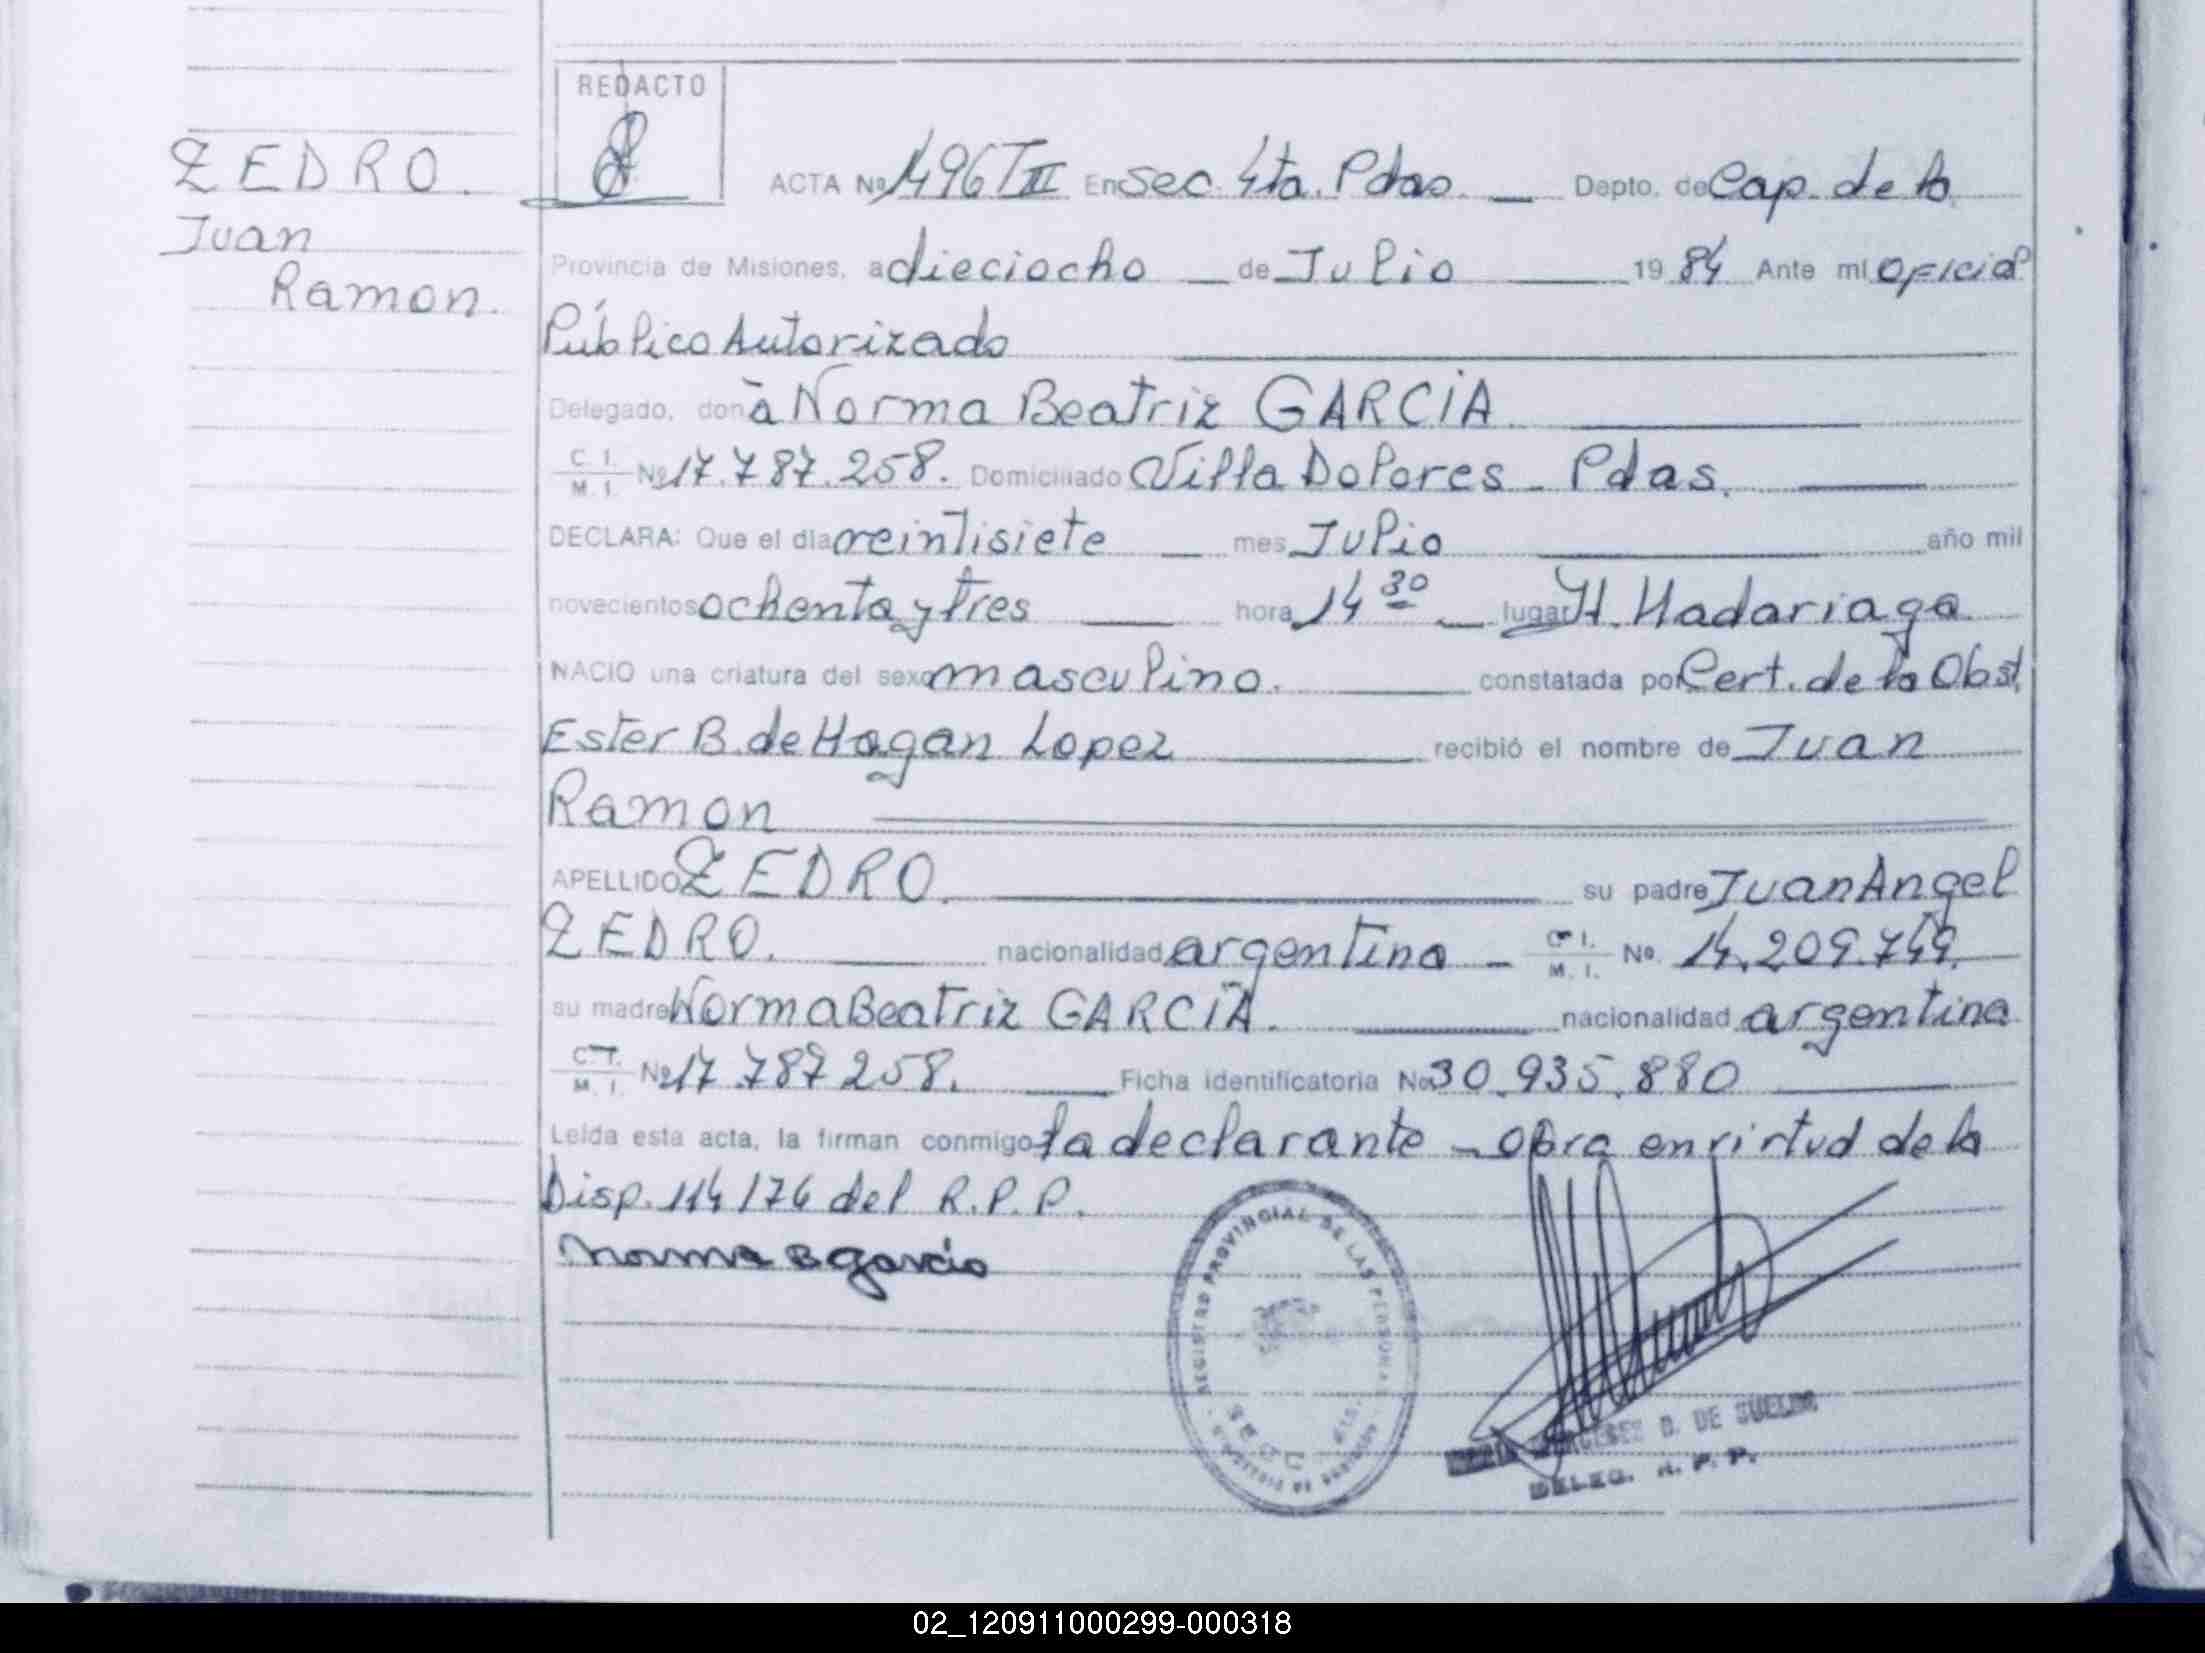 REDACTO
ZEDRO.
Juan
Ramon.
ACTA Nº 1496 T III En Sec. 4ta. Pdas. Depto. de Cap. de la
Provincia de Misiones, a dieciocho de Julio 19 84 Ante mi Oficial
Público Autorizado
Delegado, don a Norma Beatriz GARCIA
C. I. M. I. Nº 17.787.258. Domiciliado Villa Dolores - Pdas.
DECLARA: Que el día veintisiete mes Julio año mil
novecientos ochenta y tres hora 14 30 lugar H. Madariaga
NACIO una criatura del sexo masculino. constatada por Cert. de la Obst.
Ester B. de Hagan Lopez recibió el nombre de Juan
Ramon
APELLIDO ZEDRO. su padre Juan Angel
ZEDRO. nacionalidad argentina - C. I. M. I. Nº 14.209.749.
su madre Norma Beatriz GARCIA. nacionalidad argentina
C. I. M. I. Nº 17.787 258. Ficha identificatoria Nº 30.935.880
Leída esta acta, la firman conmigo la declarante - Obra en virtud de la
Disp. 114/76 del R.P.P.
Norma B Garcia
REGISTRO PROVINCIAL DE LAS PERSONAS
B. DE SUELDO
DELEG. R. P. P.
02_120911000299-000318